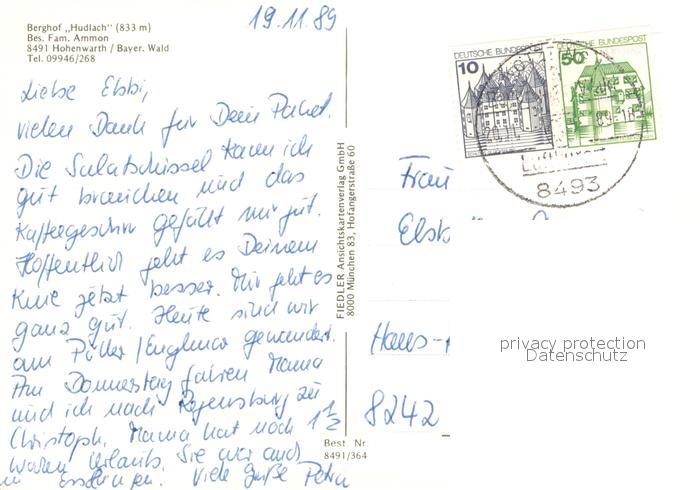 19.11.89
Berghof „Hudlach" (833 m)
Bes. Fam. Ammon
8491 Hohenwarth / Bayer. Wald
Tel. 09946/268
Liebe Elsbi,
vielen Dank für Dein Paket.
Die Salatschüssel kann ich
gut brauchen und das
Kaffeegeschirr gefällt mir gut.
Hoffentlich geht es Deinem
Knie jetzt besser. Mir geht es
ganz gut. Heute sind wir
am Pröller/Englmar gewandert.
Am Donnerstag fahren Mama
und ich nach Regensburg zu
Christoph. Mama hat noch 1 1/2
Wochen Urlaub. Sie war auch
in Viele Grüße Petra
FIEDLER Ansichtskartenverlag GmbH
8000 München 83, Hofangerstraße 60
Best. Nr.
8491/364
DEUTSCHE BUNDESPOST
10
DEUTSCHE BUNDESPOST
50
8493
Frau
Elsb
Hans-
8242
privacy protection
Datenschutz